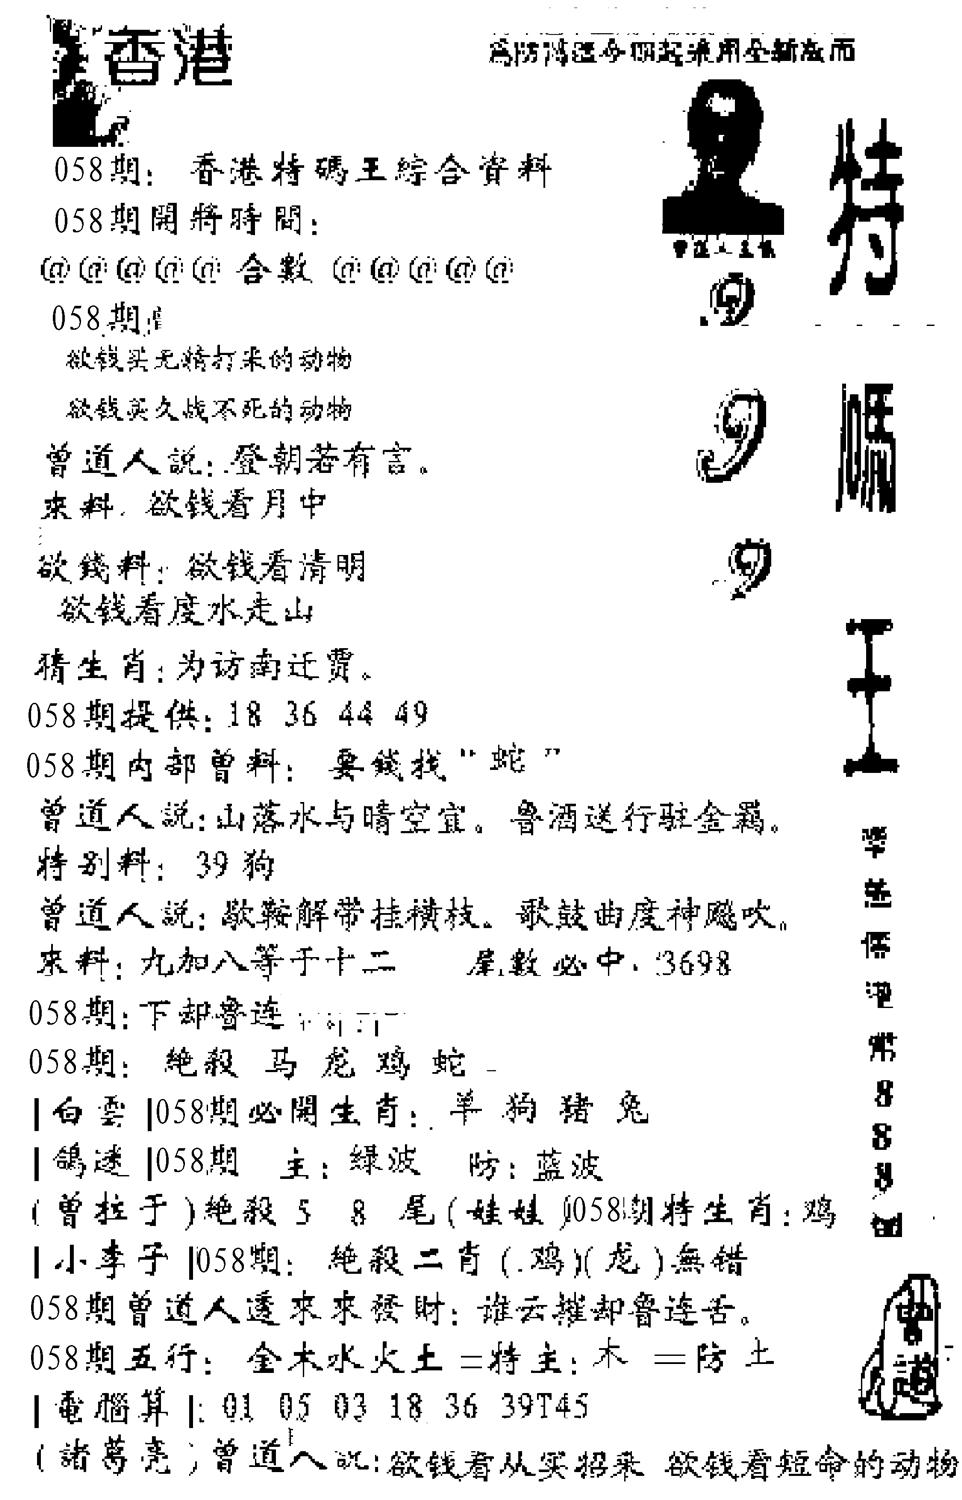 香港
為防澷透今期起采用全新版面
特
碼
王
999
058期: 香港特碼王綜合資料
058期開將時間:
@@@@@ 合數 @@@@@
058期:
欲钱买无精打采的动物
欲钱买久战不死的动物
曾道人説: 登朝若有言。
來料. 欲钱看月中
欲錢料: 欲钱看清明
欲钱看度水走山
猜生肖: 为访南迁贾。
058期提供: 18 36 44 49
058期内部曾料: 要錢找"蛇"
曾道人説: 山落水与晴空宜。鲁酒送行驻金羁。
特别料: 39狗
曾道人説: 歇鞍解带挂横枝。歌鼓曲度神飚吹。
來料: 九加八等于十二 尾數必中. 3698
058期: 下却鲁连
058期: 絶殺 马 龙 鸡 蛇
|白雲|058期必開生肖: 羊 狗 猪 兔
|鴿迷|058期 主: 綠波 防: 蓝波
(曾拉于)絶殺 5 8 尾(娃娃)058期特生肖: 鸡
|小李子|058期: 絶殺二肖(鸡)(龙)無错
058期曾道人透來來發財: 谁云摧却鲁连舌。
058期五行: 金木水火土=特主: 木 =防 土
|電腦算|: 01 05 03 18 36 39T45
(諸葛亮)曾道人説: 欲钱看从实招来 欲钱看短命的动物
888